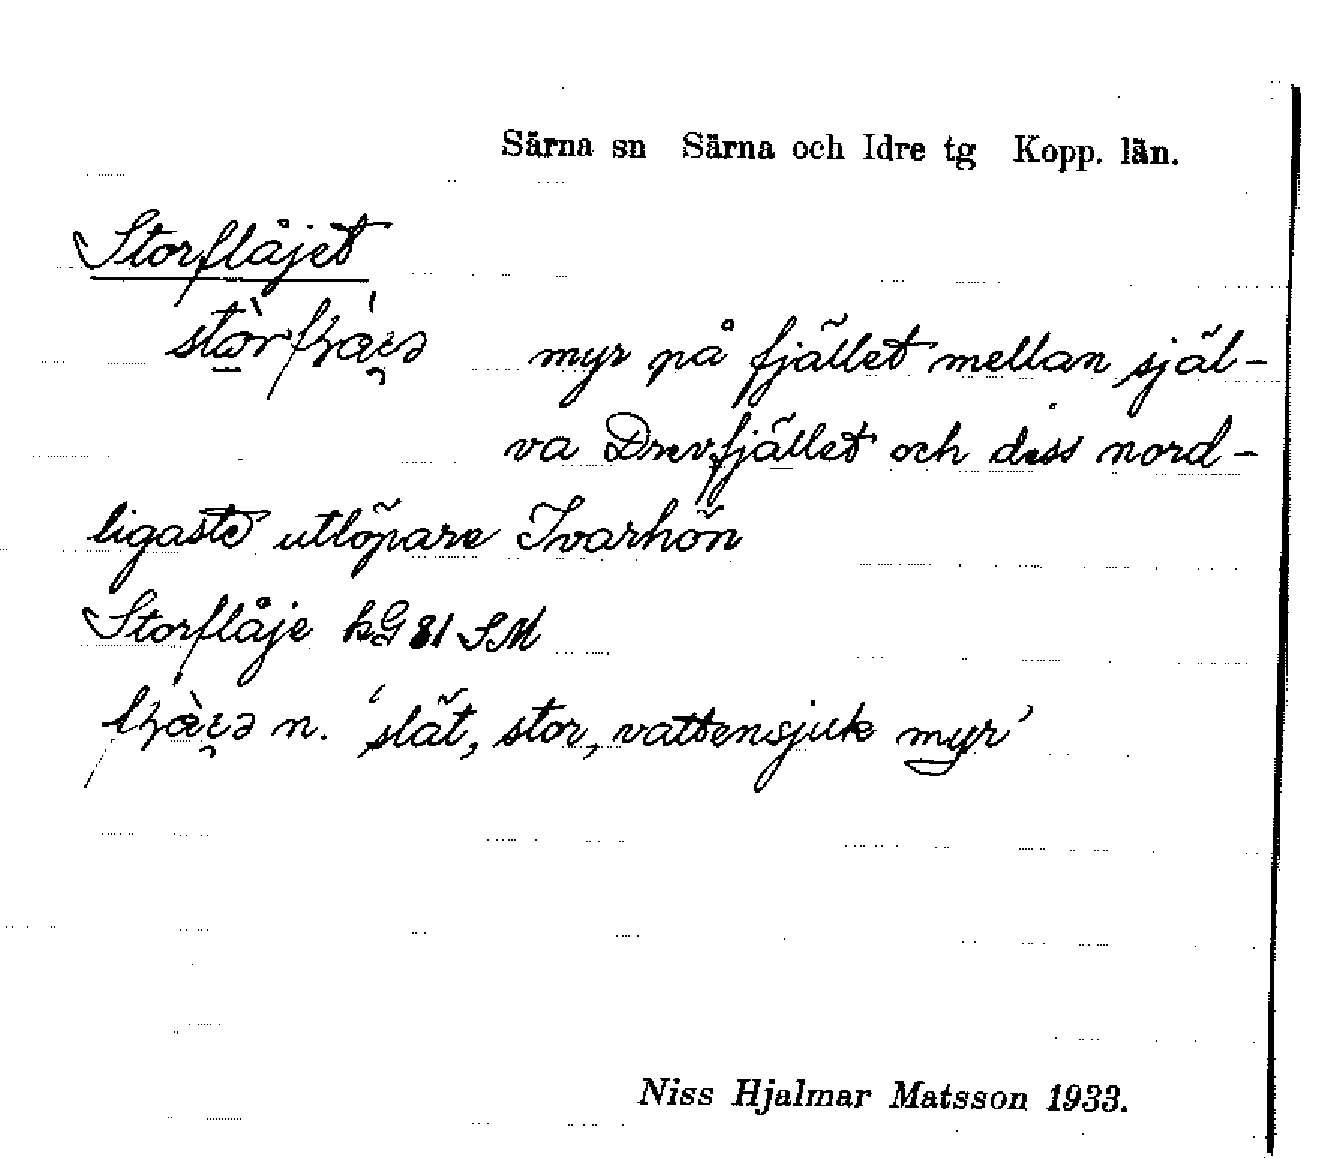 Särna sn Särna och Idre tg Kopp. län.
Storflåjet
myr på fjället mellan själ-
va Drevfjället och dess nord-
ligaste utlöpare Ivarhön
Storflåje kG 81 SM
n. 'slät, stor, vattensjuk myr'
Niss Hjalmar Matsson 1933.